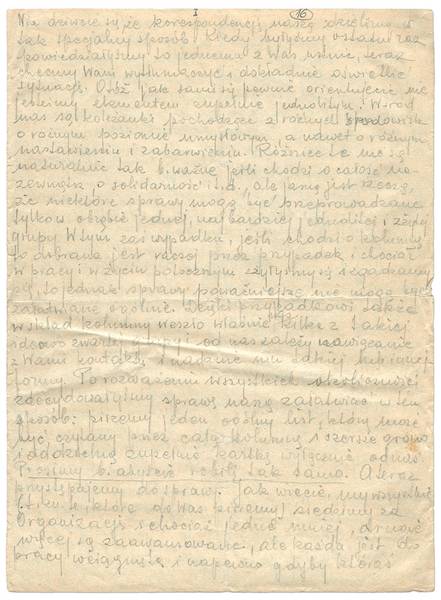 I 16
Nie dziwcie się że korespondencję naszą dzielimy w
tak specjalny sposób! Kiedy byłyśmy ostatni raz
powiedziałyśmy to jednemu z Was ustnie, teraz
chcemy Wam wytłumaczyć i dokładnie oświetlić
sytuację. Otóż jak sami się pewnie orientujecie nie
jesteśmy elementem zupełnie jednolitym. Wśród
nas są koleżanki pochodzące z różnych środowisk
o różnym poziomie umysłowym, a nawet o różnym
nastawieniu i zabarwieniu. Różnice te nie są
naturalnie tak b. ważne jeśli chodzi o całość na
zewnątrz, o solidarność i.t.d., ale jasną jest rzeczą,
że niektóre sprawy mogą być przeprowadzane
tylko w obrębie jednej, najbardziej jednolitej i zżytej
grupy. W tym zaś wypadku, jeśli chodzi o kolumny,
to dobrana jest raczej przez przypadek i chociaż
w pracy i w życiu potocznym zżyłyśmy się i zgadzamy
się, to jednak sprawy poważniejsze nie mogą być
załatwiane ogólnie. Dzięki przypadkowi także
w skład kolumny weszło właśnie kilka z takiej
ideowo zwartej grupy i od nas zależy nawiązanie
z Wami kontaktu i nadanie mu takiej lub innej
formy. Po rozważeniu wszystkich okoliczności
zdecydowałyśmy sprawę naszą załatwiać w ten
sposób: piszemy jeden ogólny list, który może
być czytany przez całą kolumnę i szersze grono
i oddzielną zupełnie kartkę wyłącznie od nas.
Prosimy b. abyście robili tak samo. A teraz
przystępujemy do sprawy. Jak wiecie, my wszystkie
(t.zn. te, które do Was piszemy) siedzimy za
Organizację i chociaż jedne mniej, drugie
więcej są zaawansowane, ale każda jest do
pracy wciągnięta i napewno gdyby któraś